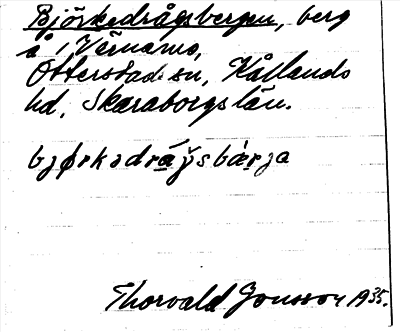 Björkedrågsbergen, berg
å Värnamo,
Otterstads sn, Kållands
hd, Skaraborgs län.
bjørkədrågsbærja
Thorvald Jonsson 1935.